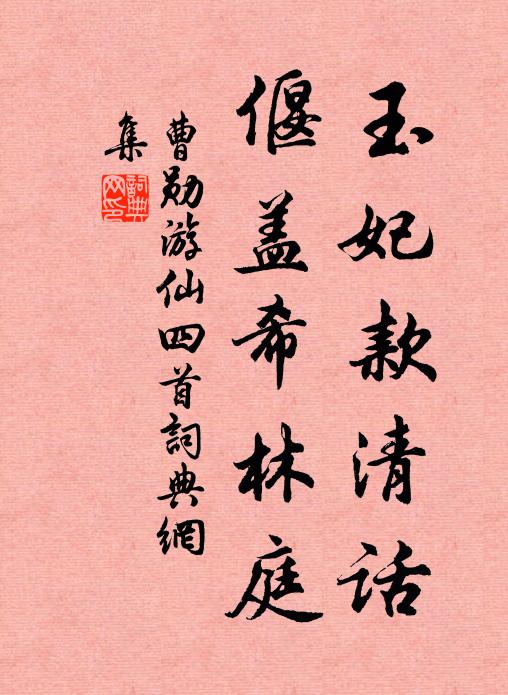 玉妃款清话
偃盖希林庭
曹勋游仙四首詞典網
集
詞典网印